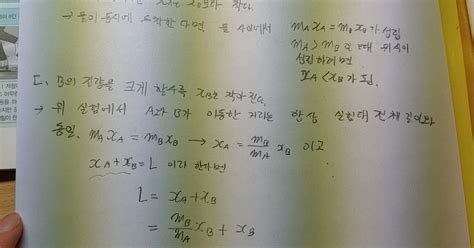 x_B보다 작다.
→ 둘이 동시에 도착한다면 둘 사이에서 m_A x_A = m_B x_B가 성립
m_A > m_B일 때 위 식이
성립하려면
x_A < x_B가 됨.
ㄷ. B의 질량을 크게 할수록 x_B는 작아진다.
→ 위 실험에서 A와 B가 이동한 거리는 항상 실험대 전체 길이와
동일. m_A x_A = m_B x_B → x_A = m_B/m_A x_B 이고
x_A + x_B = L 이라 한다면
L = x_A + x_B
= m_B/m_A x_B + x_B